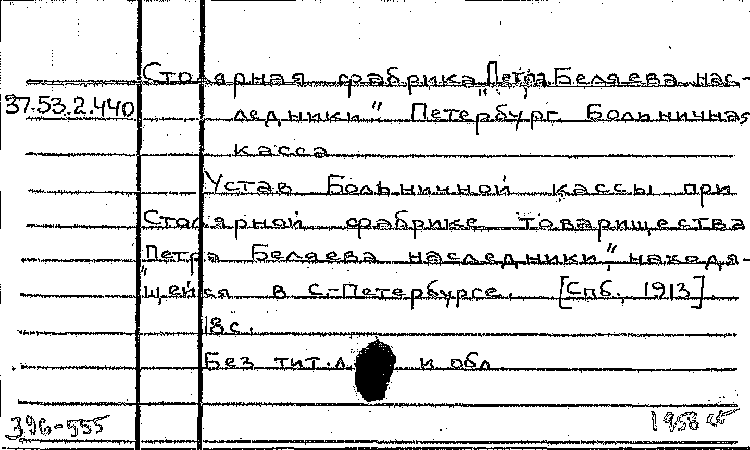 Столярная фабрика „Петра Беляева нас-
37.53.2.440 ледники" Петербург. Больничная
касса
Устав Больничной кассы при
Столярной фабрике товарищества
„Петра Беляева наследники", находя-
щейся в С.-Петербурге. [Спб., 1913].
18 с.
Без тит. л. и обл
396-555 1958